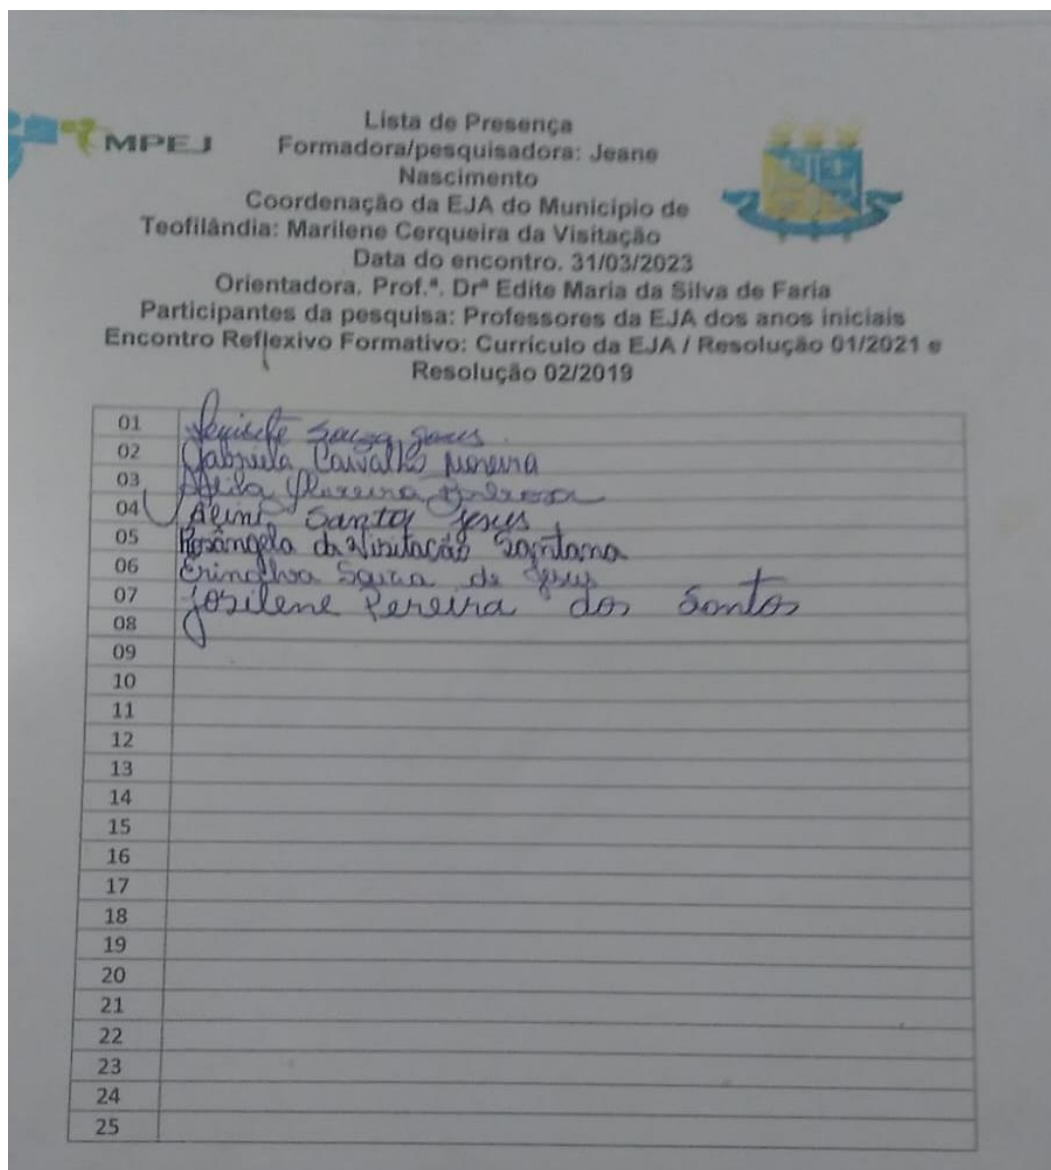 MPEJ
Lista de Presença
Formadora/pesquisadora: Jeane
Nascimento
Coordenação da EJA do Município de
Teofilândia: Marilene Cerqueira da Visitação
Data do encontro. 31/03/2023
Orientadora. Prof.ª. Drª Edite Maria da Silva de Faria
Participantes da pesquisa: Professores da EJA dos anos iniciais
Encontro Reflexivo Formativo: Currículo da EJA / Resolução 01/2021 e
Resolução 02/2019
01 Souza
02 Gabriela Carvalho Moreira
03
04 Santos Jesus
05 Rosângela da Visitação Santana
06 Erinalva Souza de Jesus
07 Josilene Pereira dos Santos
08
09
10
11
12
13
14
15
16
17
18
19
20
21
22
23
24
25